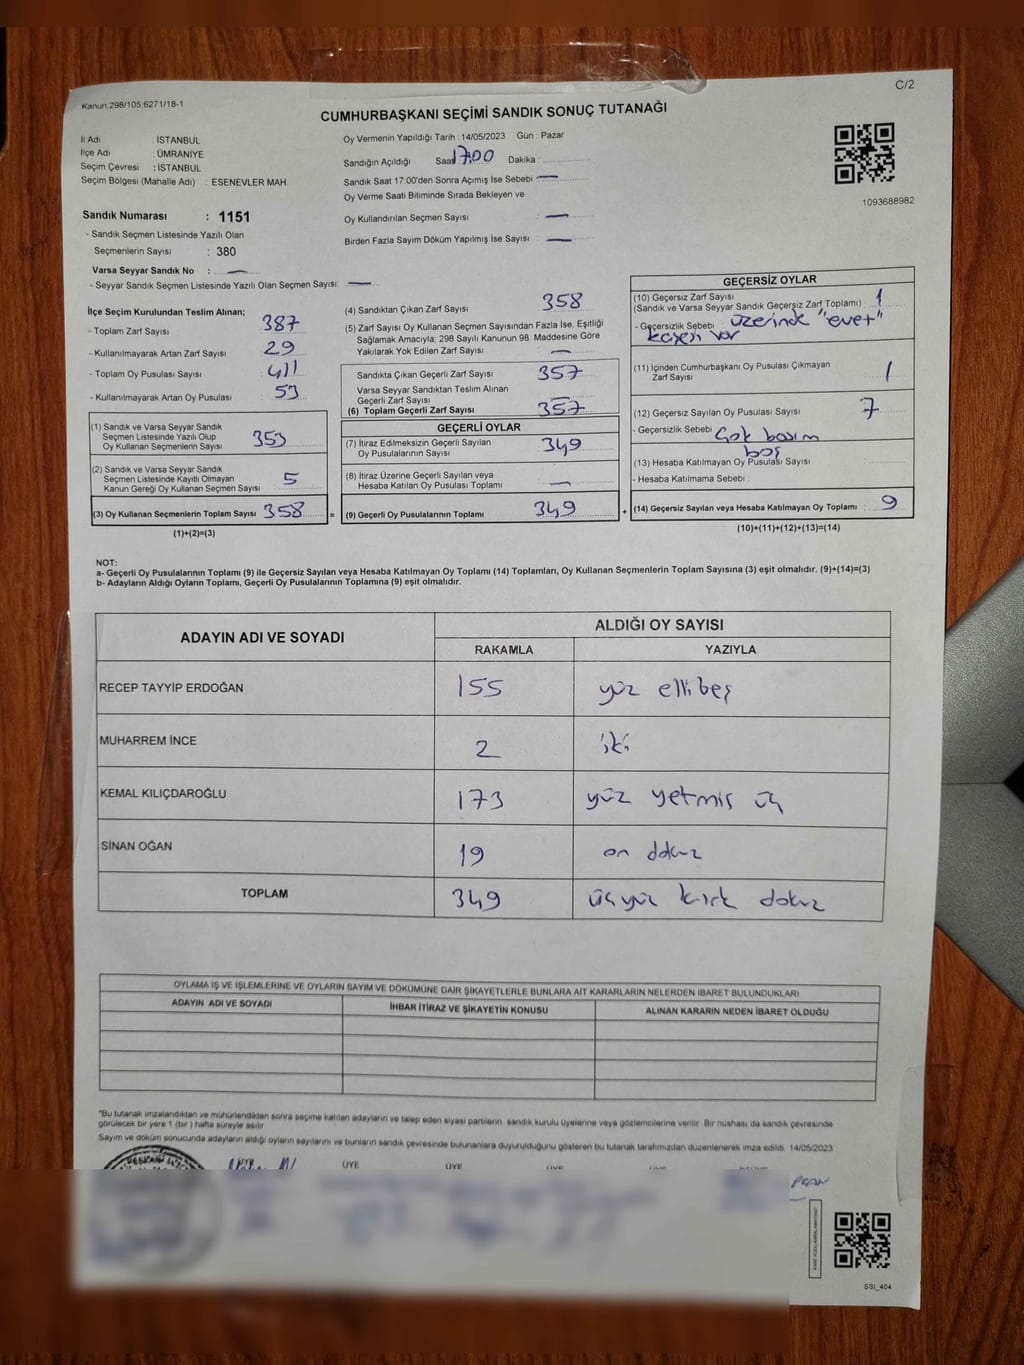 C/2
Kanun:298/105;6271/18-1
CUMHURBAŞKANI SEÇİMİ SANDIK SONUÇ TUTANAĞI
İl Adı : İSTANBUL
İlçe Adı : ÜMRANİYE
Seçim Çevresi : İSTANBUL
Seçim Bölgesi (Mahalle Adı) : ESENEVLER MAH.
Sandık Numarası : 1151
- Sandık Seçmen Listesinde Yazılı Olan
Seçmenlerin Sayısı : 380
Varsa Seyyar Sandık No : —
- Seyyar Sandık Seçmen Listesinde Yazılı Olan Seçmen Sayısı: —
Oy Vermenin Yapıldığı Tarih :14/05/2023 Gün : Pazar
Sandığın Açıldığı Saat 17:00 Dakika :
Sandık Saat 17:00'den Sonra Açımış İse Sebebi : —
Oy Verme Saati Bitiminde Sırada Bekleyen ve
Oy Kullandırılan Seçmen Sayısı : —
Birden Fazla Sayım Döküm Yapılmış İse Sayısı : —
1093688982
İlçe Seçim Kurulundan Teslim Alınan;
- Toplam Zarf Sayısı : 387
- Kullanılmayarak Artan Zarf Sayısı : 29
- Toplam Oy Pusulası Sayısı : 411
- Kullanılmayarak Artan Oy Pusulası : 53
(1) Sandık ve Varsa Seyyar Sandık
Seçmen Listesinde Yazılı Olup
Oy Kullanan Seçmenlerin Sayısı : 353
(2) Sandık ve Varsa Seyyar Sandık
Seçmen Listesinde Kayıtlı Olmayan
Kanun Gereği Oy Kullanan Seçmen Sayısı : 5
(3) Oy Kullanan Seçmenlerin Toplam Sayısı : 358
(1)+(2)=(3)
(4) Sandıktan Çıkan Zarf Sayısı : 358
(5) Zarf Sayısı Oy Kullanan Seçmen Sayısından Fazla İse, Eşitliği
Sağlamak Amacıyla; 298 Sayılı Kanunun 98. Maddesine Göre
Yakılarak Yok Edilen Zarf Sayısı : —
Sandıkta Çıkan Geçerli Zarf Sayısı : 357
Varsa Seyyar Sandıktan Teslim Alınan
Geçerli Zarf Sayısı : —
(6) Toplam Geçerli Zarf Sayısı : 357
GEÇERLİ OYLAR
(7) İtiraz Edilmeksizin Geçerli Sayılan
Oy Pusulalarının Sayısı : 349
(8) İtiraz Üzerine Geçerli Sayılan veya
Hesaba Katılan Oy Pusulası Toplamı : —
(9) Geçerli Oy Pusulalarının Toplamı : 349
GEÇERSİZ OYLAR
(10) Geçersiz Zarf Sayısı : 1
(Sandık ve Varsa Seyyar Sandık Geçersiz Zarf Toplamı)
- Geçersizlik Sebebi : üzerinde "evet"
kaşesi var
(11) İçinden Cumhurbaşkanı Oy Pusulası Çıkmayan
Zarf Sayısı : 1
(12) Geçersiz Sayılan Oy Pusulası Sayısı : 7
- Geçersizlik Sebebi : Çok basım
boş
(13) Hesaba Katılmayan Oy Pusulası Sayısı :
- Hesaba Katılmama Sebebi :
(14) Geçersiz Sayılan veya Hesaba Katılmayan Oy Toplamı : 9
(10)+(11)+(12)+(13)=(14)
NOT:
a- Geçerli Oy Pusulalarının Toplamı (9) ile Geçersiz Sayılan veya Hesaba Katılmayan Oy Toplamı (14) Toplamları, Oy Kullanan Seçmenlerin Toplam Sayısına (3) eşit olmalıdır. (9)+(14)=(3)
b- Adayların Aldığı Oyların Toplamı, Geçerli Oy Pusulalarının Toplamına (9) eşit olmalıdır.
ADAYIN ADI VE SOYADI ALDIĞI OY SAYISI
RAKAMLA YAZIYLA
RECEP TAYYİP ERDOĞAN 155 yüz ellibeş
MUHARREM İNCE 2 iki
KEMAL KILIÇDAROĞLU 173 yüz yetmiş üç
SİNAN OĞAN 19 on dokuz
TOPLAM 349 üçyüz kırk dokuz
OYLAMA İŞ VE İŞLEMLERİNE VE OYLARIN SAYIM VE DÖKÜMÜNE DAİR ŞİKAYETLERLE BUNLARA AİT KARARLARIN NELERDEN İBARET BULUNDUKLARI
ADAYIN ADI VE SOYADI İHBAR İTİRAZ VE ŞİKAYETİN KONUSU ALINAN KARARIN NEDEN İBARET OLDUĞU
*Bu tutanak imzalandıktan ve mühürlendikten sonra seçime katılan adayların ve talep eden siyasi partilerin sandık kurulu üyelerine veya gözlemcilerine verilir. Bir nüshası da sandık çevresinde
görülecek bir yere 1 (bir) hafta süreyle asılır
Sayım ve döküm sonucunda adayların aldığı oyların sayılarını ve bunların sandık çevresinde bulunanlara duyurulduğunu gösteren bu tutanak tarafımızdan düzenlenerek imza edildi. 14/05/2023
ÜYE ÜYE ÜYE
SSİ_404